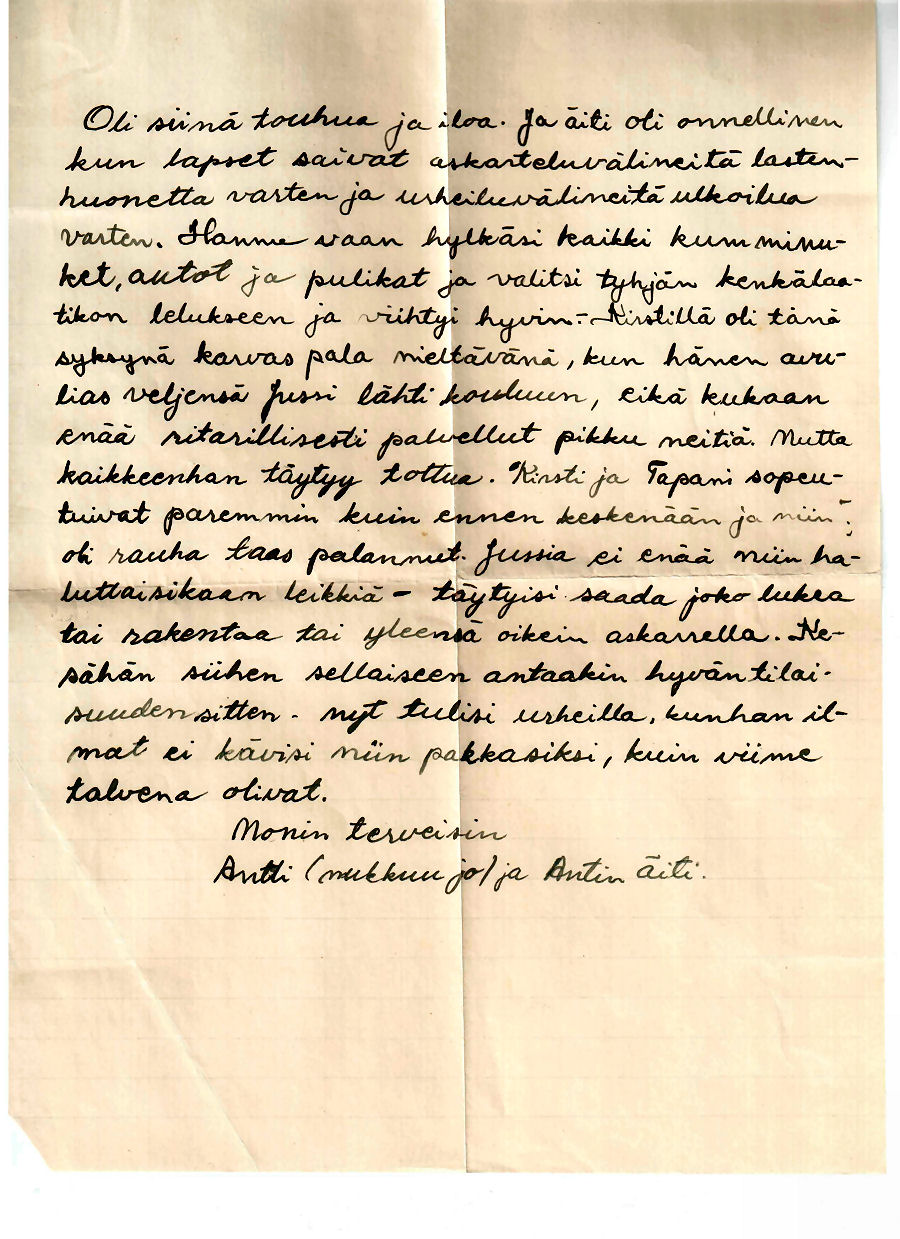 Oli siinä touhua ja iloa. Ja äiti oli onnellinen
kun lapset saivat askarteluvälineitä lasten-
huonetta varten ja urheiluvälineitä ulkoilua
varten. Hannu vaan hylkäsi kaikki kumminu-
ket, autot ja pulikat ja valitsi tyhjän kenkälaa-
tikon lelukseen ja viihtyi hyvin.- Kirstillä oli tänä
syksynä karvas pala nieltävänä, kun hänen avu-
lias veljensä Jussi lähti kouluun, eikä kukaan
enää ritarillisesti palvellut pikku neitiä. Mutta
kaikkeenhan täytyy tottua. Kirsti ja Tapani sopeu-
tuivat paremmin kuin ennen keskenään ja niin
oli rauha taas palannut. Jussia ei enää niin ha-
luttaisikaan leikkiä - täytyisi saada joko lukea
tai rakentaa tai yleensä oikein askarrella. Ke-
sähän siihen sellaiseen antaakin hyvän tilai-
suuden sitten. nyt tulisi urheilla, kunhan il-
mat ei kävisi niin pakkasiksi, kuin viime
talvena olivat.
Monin terveisin
Antti (nukkuu jo) ja Antin äiti.